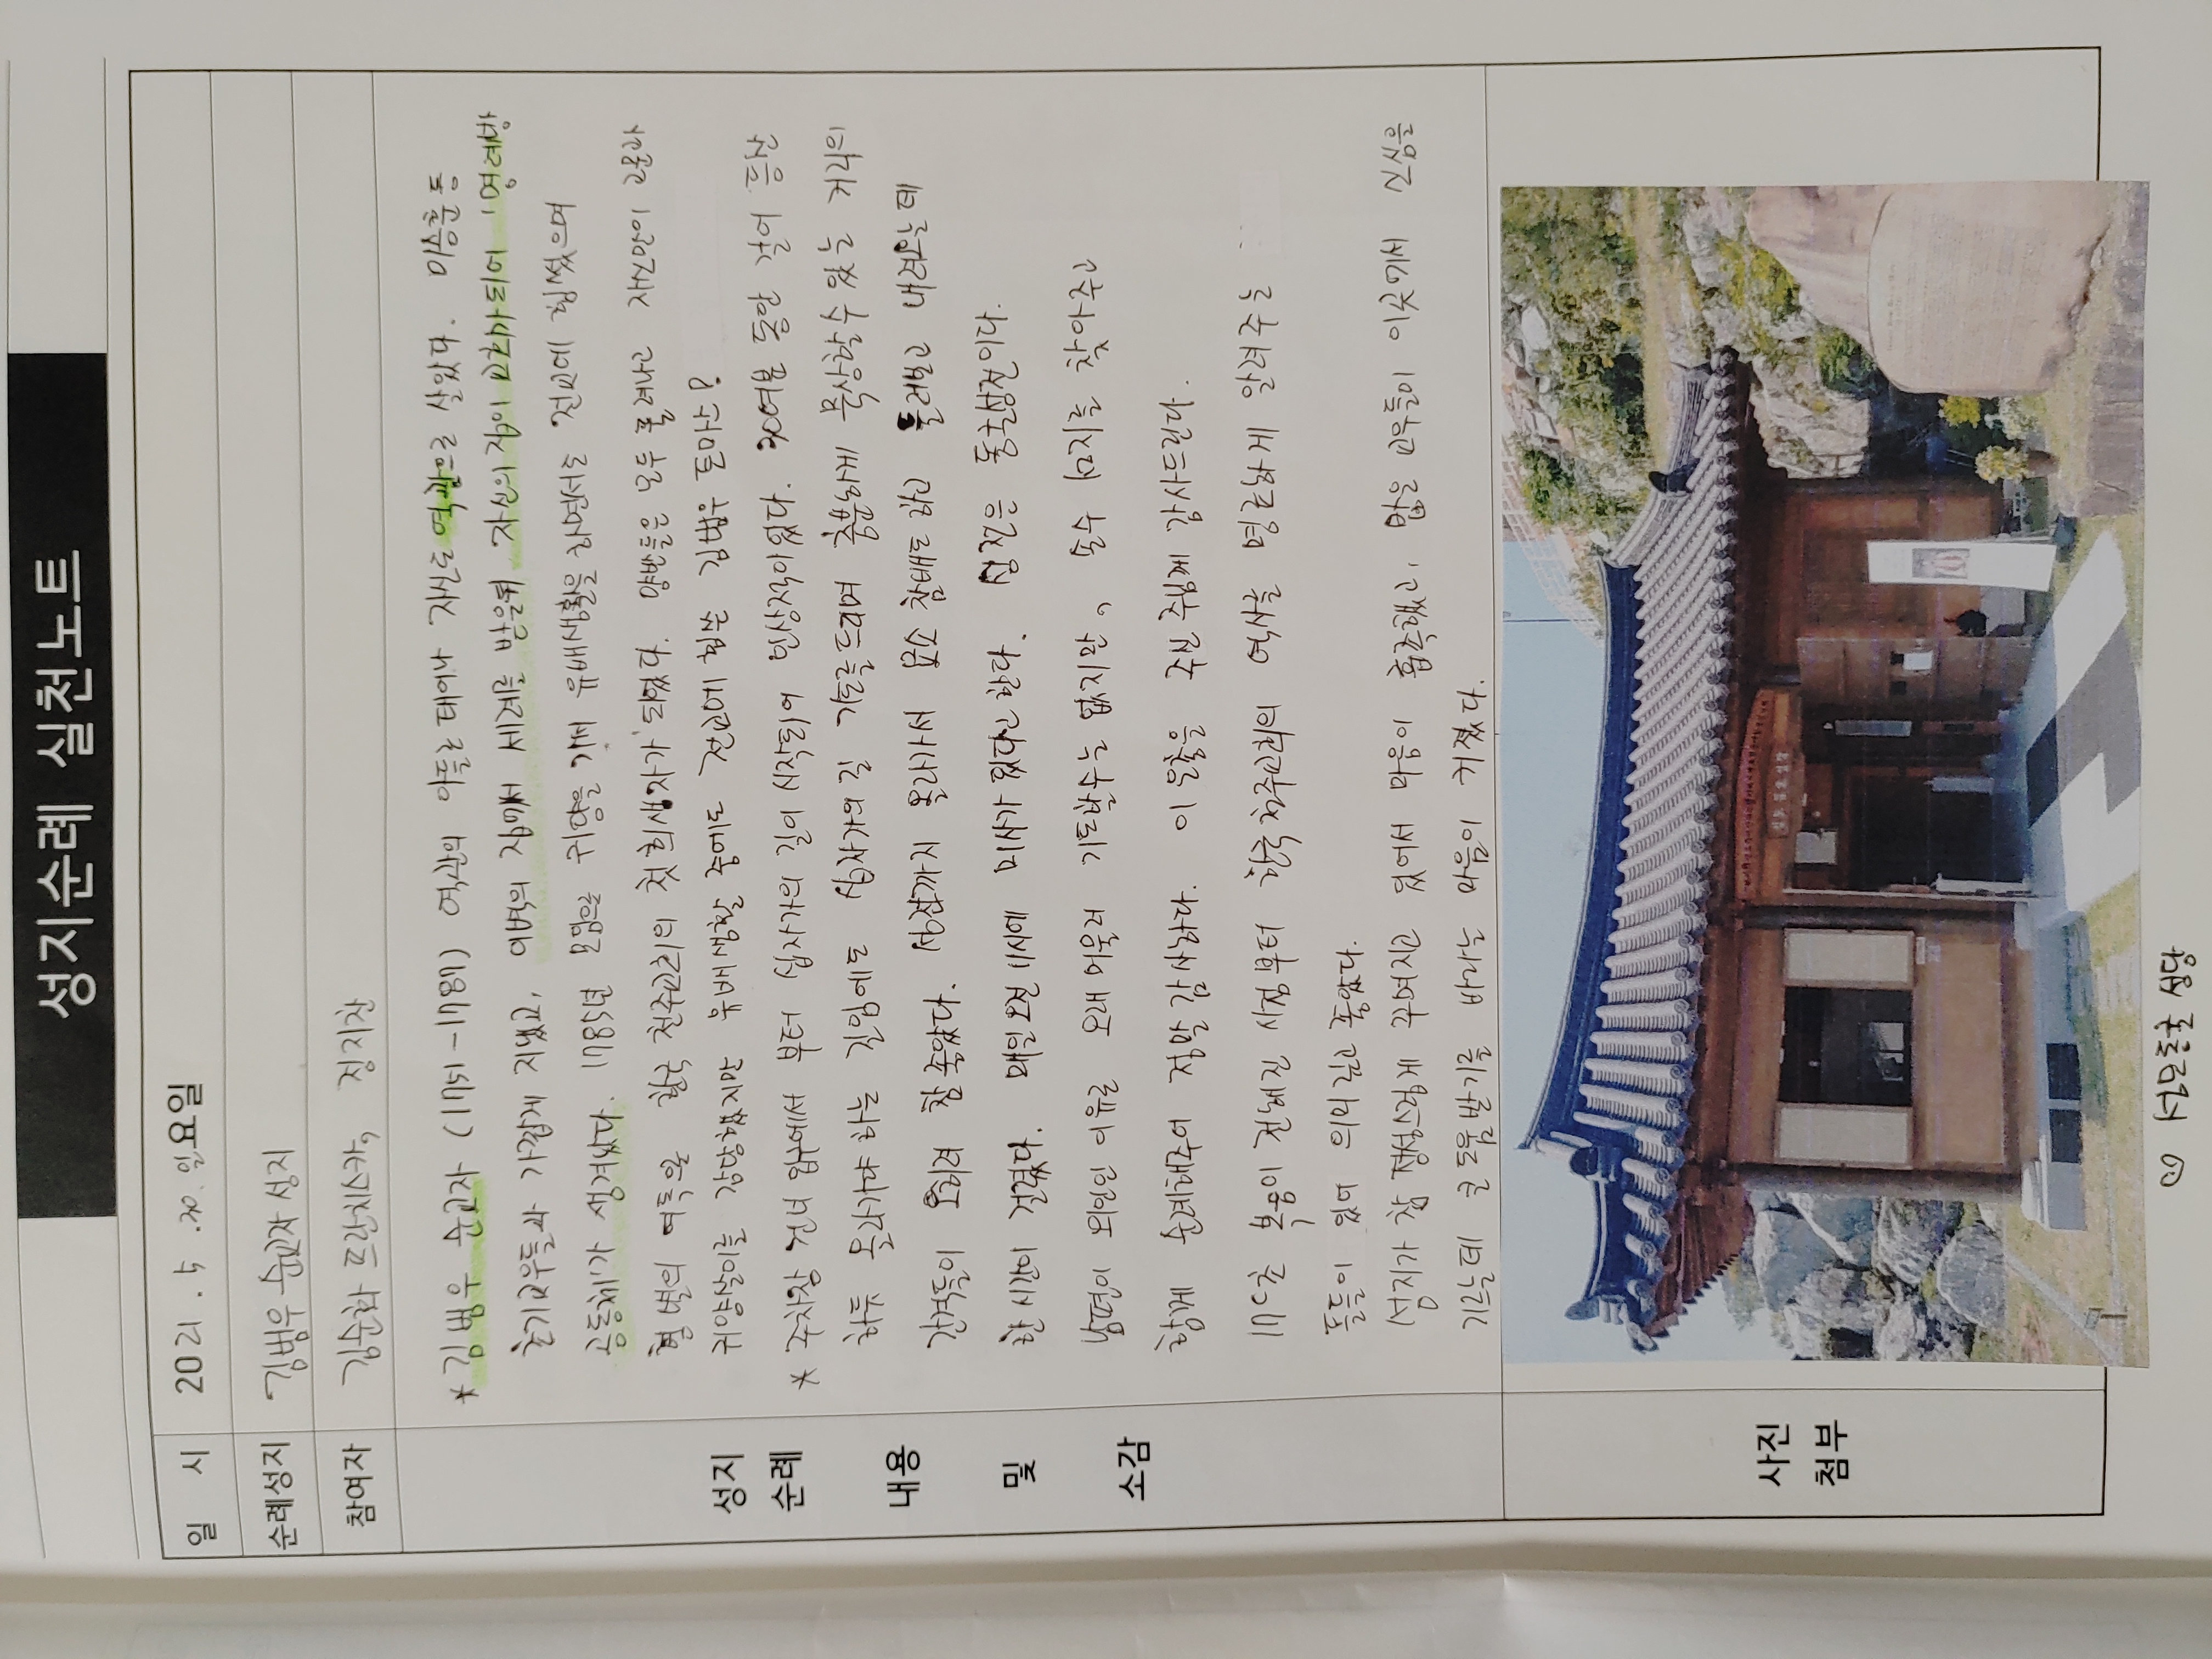 성지순례 실천노트
일 시 2021 . 5 .30. 일요일
순례성지 김범우 순교자 성지
참여자 김순화 프란치스카, 정지찬
성지 순례 내용 및 소감
* 김범우 순교자 (1751-1787) 역관의 아들로 태어나 자신도 역관으로 살았다. 이승훈 등
초기교우들과 가깝게 지냈고, 이벽의 집에서 세례를 받은뒤 자신의 집이 교회가 되어 '명례방
공동체'가 생겨났다. 1785년 모함으로 귀양을 가서 유배생활을 하면서도 전교에 힘썼으며
형벌의 여독으로 한국 천주교회의 첫 희생자가 되었다. 양반들은 모두 풀려나고 자신만이 고문과
귀양살이를 감당했지만 유배생활 중에도 전교에 힘쓴 김범우 토마스!
* 주차장 건너 입구에서 부터 십자가의 길이 시작되어 인상적이었다. 30여분 동안 걸어 등산
하듯 올라가야 하는 길임에도 십자가의 길 기도를 드리며 충분하게 묵상할수 있는 거리의
간격들이 오히려 참 좋았다. 성전까지 올라가서 묘소 참배도 하고 둘러보고 내려오는데
한 시간이 걸렸다. 매일 오전 11시에 미사가 있다고 한다. 성전은 동굴성전이다.
남편이 외인인 이유로 오래 머물러 기도할수는 없지만, 손수 성지를 찾아주고
함께 순례해주어 정말 감사하다. 이 은총을 주신 주님께 감사드린다.
17C초 복음이 전해진 시점부터 한국천주교회의 역사를 명료하게 알려주는
돌들이 있어 의미 깊고 좋았다.
성지가 참 정성스럽게 꾸며지고 있어서 마음이 흡족했고, 많은 교우들이 이곳에서 신심을
기르는데 큰 도움 받기를 바라는 마음이 커졌다.
사진 첨부
성모동굴성당
♡ 성모동굴 성당